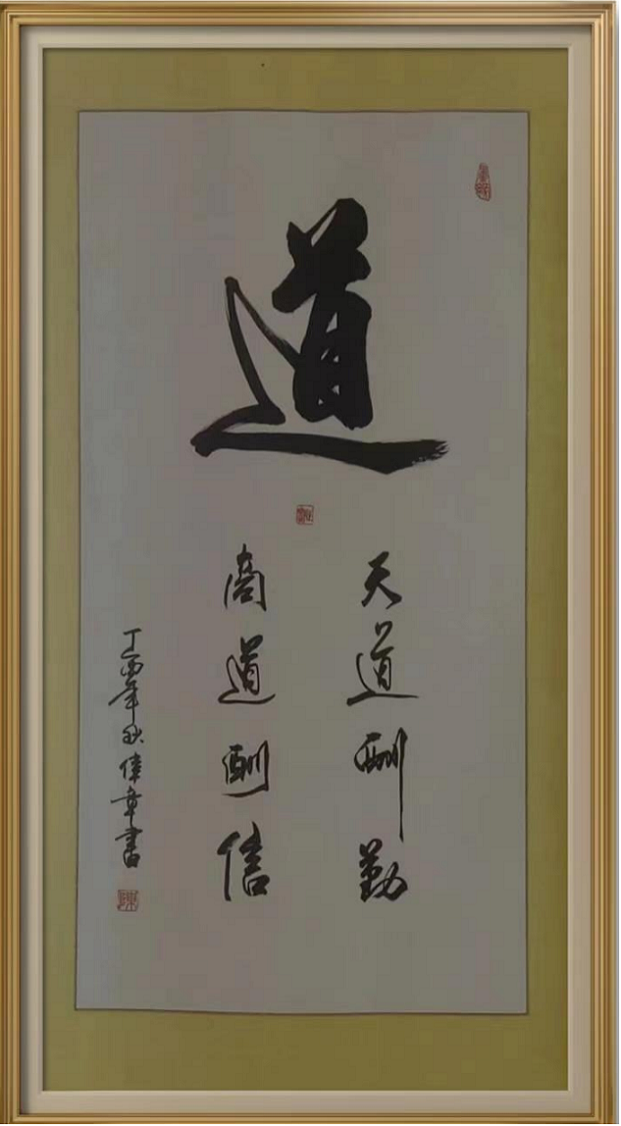 道
天道酬勤
商道酬信
丁酉年秋 偉章書